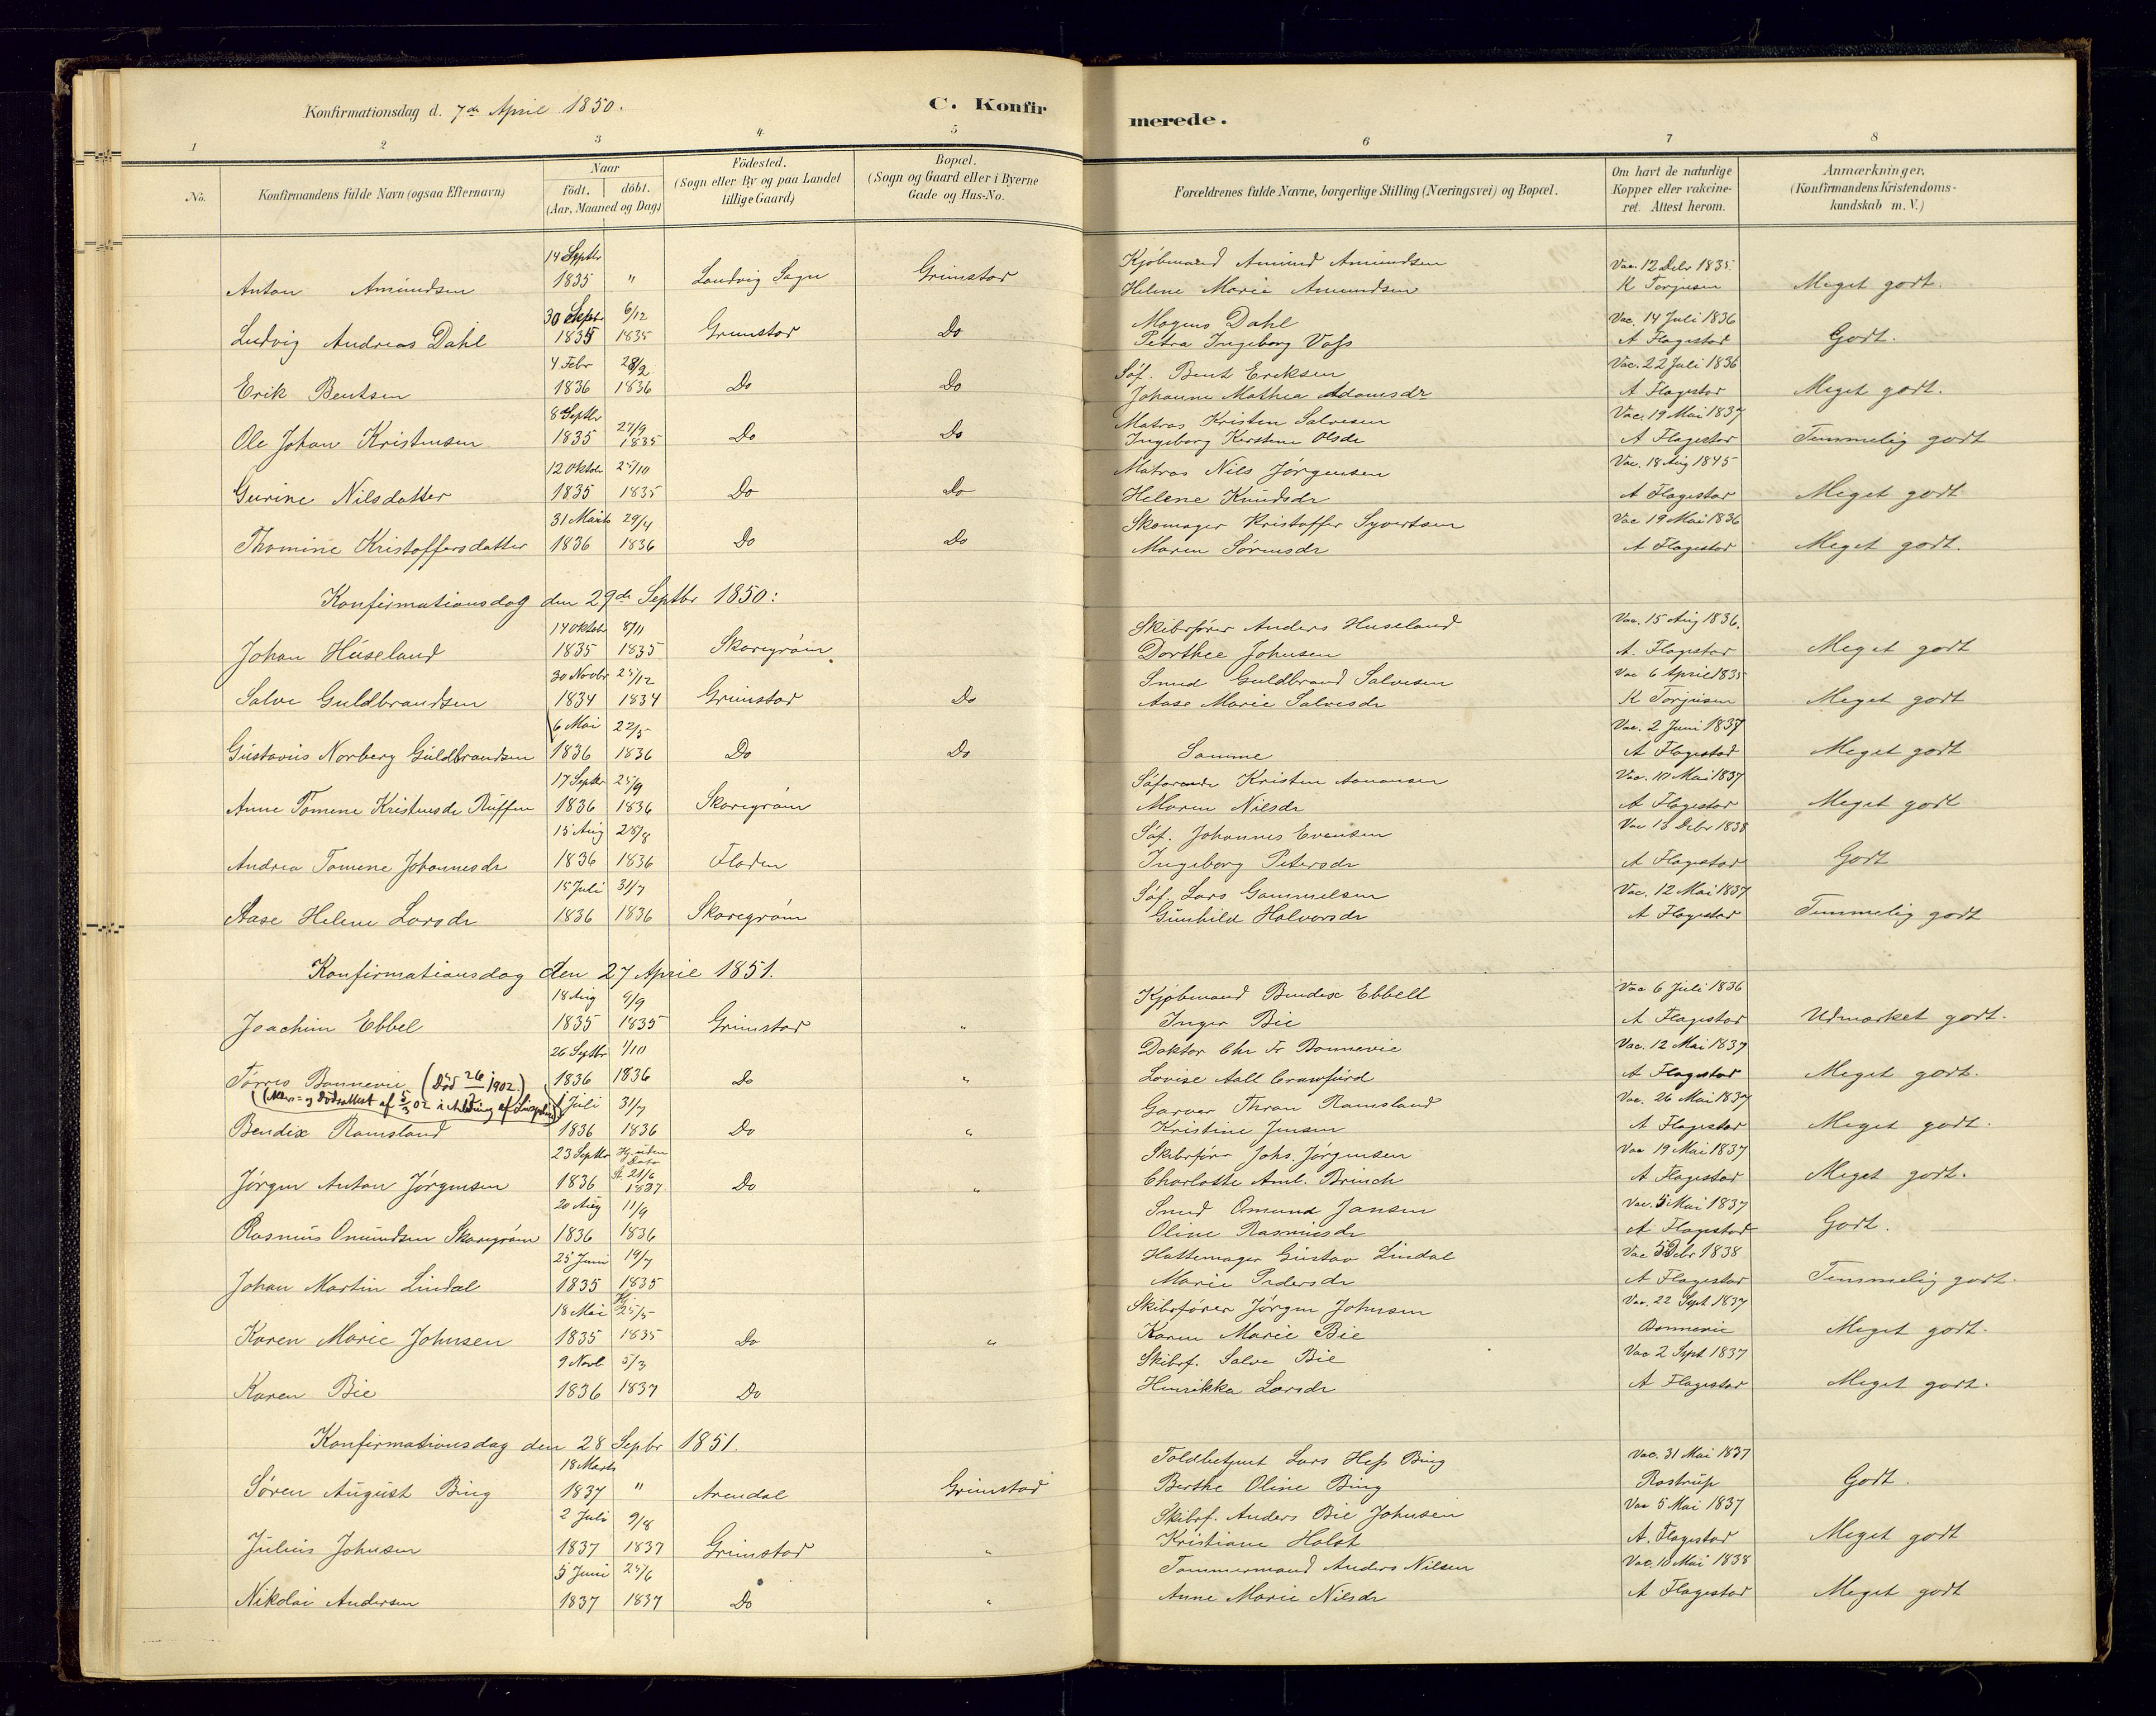 Konfirmationsdag d. 7de April 1850.
C. Konfirmerede.
1 2 3 4 5 6 7 8
No.
Konfirmandens fulde Navn (ogsaa Efternavn)
Naar
födt. döbt.
(Aar, Maaned og Dag)
Födested.
(Sogn eller By og paa Landet
tillige Gaard)
Bopæl.
(Sogn og Gaard eller i Byerne
Gade og Hus-No.
Forældrenes fulde Navne, borgerlige Stilling (Næringsvei) og Bopæl.
Om havt de naturlige
Kopper eller vakcine-
ret. Attest herom.
Anmærkninger,
(Konfirmandens Kristendoms-
kundskab m. V.)
14 Septbr Kjøbmand Amund Amundsen Vac. 12 Debr 1835
Anton Amundsen 1835 " Landvig Sogn Grimstad Helene Marie Amundsen K Torjusen Meget godt.
30 Septr 6/12 Mogens Dahl Vac. 14 Juli 1836
Ludvig Andreas Dahl 1835 1835 Grimstad Do Petra Ingeborg Voss A Flagestad Godt.
4 Febr 28/2 Søf. Bent Eriksen Vac. 22 Juli 1836
Erik Bentsen 1836 1836 Do Do Johanne Mathea Adamsdr A Flagestad Meget godt.
8 Septbr 27/9 Matros Kristen Salvesen Vac. 19 Mai 1837
Ole Johan Kristensen 1835 1835 Do Do Ingeborg Kirstine Olsdr A Flagestad Temmelig godt
12 Oktobr 25/10 Matros Nils Jørgensen Vac. 18 Aug 1845
Gurine Nilsdatter 1835 1835 Do Do Helene Knudsdr A Flagestad Meget godt
31 Marts 29/4 Skomager Kristoffer Syvertsen Vac 19 Mai 1836
Thomine Kristoffersdatter 1836 1836 Do Do Maren Sørensdr A Flagestad Meget godt.
Konfirmationsdag den 29de Septbr 1850:
14 Oktobr 8/11 Skibsfører Anders Huseland Vac. 15 Aug 1836.
Johan Huseland 1835 1835 Skaregrøm Dorthee Johnsen A. Flagestad Meget godt
30 Novbr 25/12 Smed Guldbrand Salvesen Vac 6 April 1835
Salve Guldbrandsen 1834 1834 Grimstad Do Aase Marie Salvesdr K Torjusen Meget godt
6 Mai 22/5 Vac. 2 Juni 1837
Gustavus Norberg Guldbrandsen 1836 1836 Do Do Samme A Flagestad Meget godt
17 Septbr 25/9 Søfarende Kristen Aanonsen Vac. 10 Mai 1837
Anne Tomine Kristensdr Ruffen 1836 1836 Skaregrøm Maren Nilsdr A Flagestad Meget godt
15 Aug 28/8 Søf. Johannes Evensen Vac 13 Debr 1838
Andrea Tomene Johannesdr 1836 1836 Floden Ingeborg Petersdr A Flagestad Godt
15 Juli 31/7 Søf Lars Gammelsen Vac. 12 Mai 1837
Aase Helene Larsdr 1836 1836 Skaregrøm Gunhild Halvorsdr A Flagestad Temmelig godt
Konfirmationsdag den 27 April 1851.
18 Aug 9/9 Kjøbmand Bendix Ebbell Vac 6 Juli 1836
Joachim Ebbel 1835 1835 Grimstad " Inger Bie A Flagestad Udmærket godt.
26 Septbr 1/10 Doktor Chr Fr Bonnevie Vac. 12 Mai 1837
Tørres Bonnevie (Död 26/ 1902.) 1836 1836 Do " Lovise Aall Crawfurd A Flagestad Meget godt.
Juli 31/7 Garver Thron Ramsland Vac. 26 Mai 1837
Bendix Ramsland 1836 1836 Do " Kristine Jensen A Flagestad Meget godt.
23 Septbr Hj. uden Dato Skibsfører Johs. Jørgensen Vac 19 Mai 1837
Jørgen Anton Jørgensen 1836 1837 Do " Charlotte Aml. Brinch A Flagestad Meget godt.
20 Aug 11/9 Smed Omund Jansen Vac. 5 Mai 1837
Rasmus Omundsen Skaregrøm 1836 1836 Oline Rasmusdr A Flagestad Godt.
25 Juni 19/7 Hattemager Gustav Lindal Vac 5 Debr 1838
Johan Martin Lindal 1835 1835 Marie Pedersdr A Flagestad Temmelig godt.
18 Mai Hj. 25/5 Skibsfører Jørgen Johnsen Vac. 22 Sept 1837
Karen Marie Johnsen 1835 1835 Do " Karen Marie Bie Bonnevie Meget godt.
9 Novb 5/3 Skibsf. Salve Bie Vac 2 Sept 1837
Karen Bie 1836 1837 Do Henrikka Larsdr A Flagestad Meget godt.
Konfirmationsdag den 28 Sepbr 1851.
18 Marts Toldbetjent Lars Hess Bing Vac. 31 Mai 1837
Søren August Bing 1837 " Arendal Grimstad Berthe Oline Bing Rostrup Godt.
2 Juli 9/8 Skibsf. Anders Bie Johnsen Vac 5 Mai 1837
Julius Johnsen 1837 1837 Grimstad " Kristiane Holst A. Flagestad Meget godt
5 Juni 25/6 Tømmermand Anders Nilsen Vac. 10 Mai 1838
Nikolai Andersen 1837 1837 Do " Anne Marie Nilsdr A Flagestad Meget godt